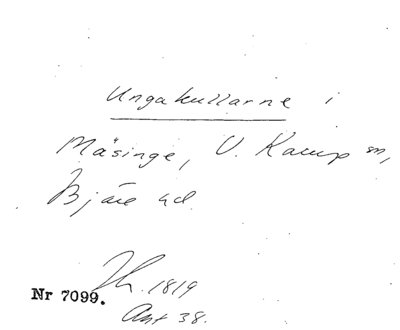 Ungakullarne i
Mäsinge, V. Karup sn,
Bjäre hd.
Th. 1819
Nr 7099.
Ant 38.